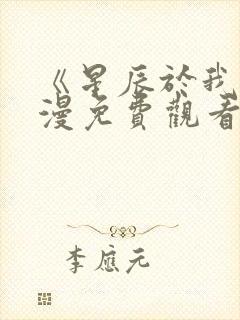 《星辰於我
漫免費觀看
李應元